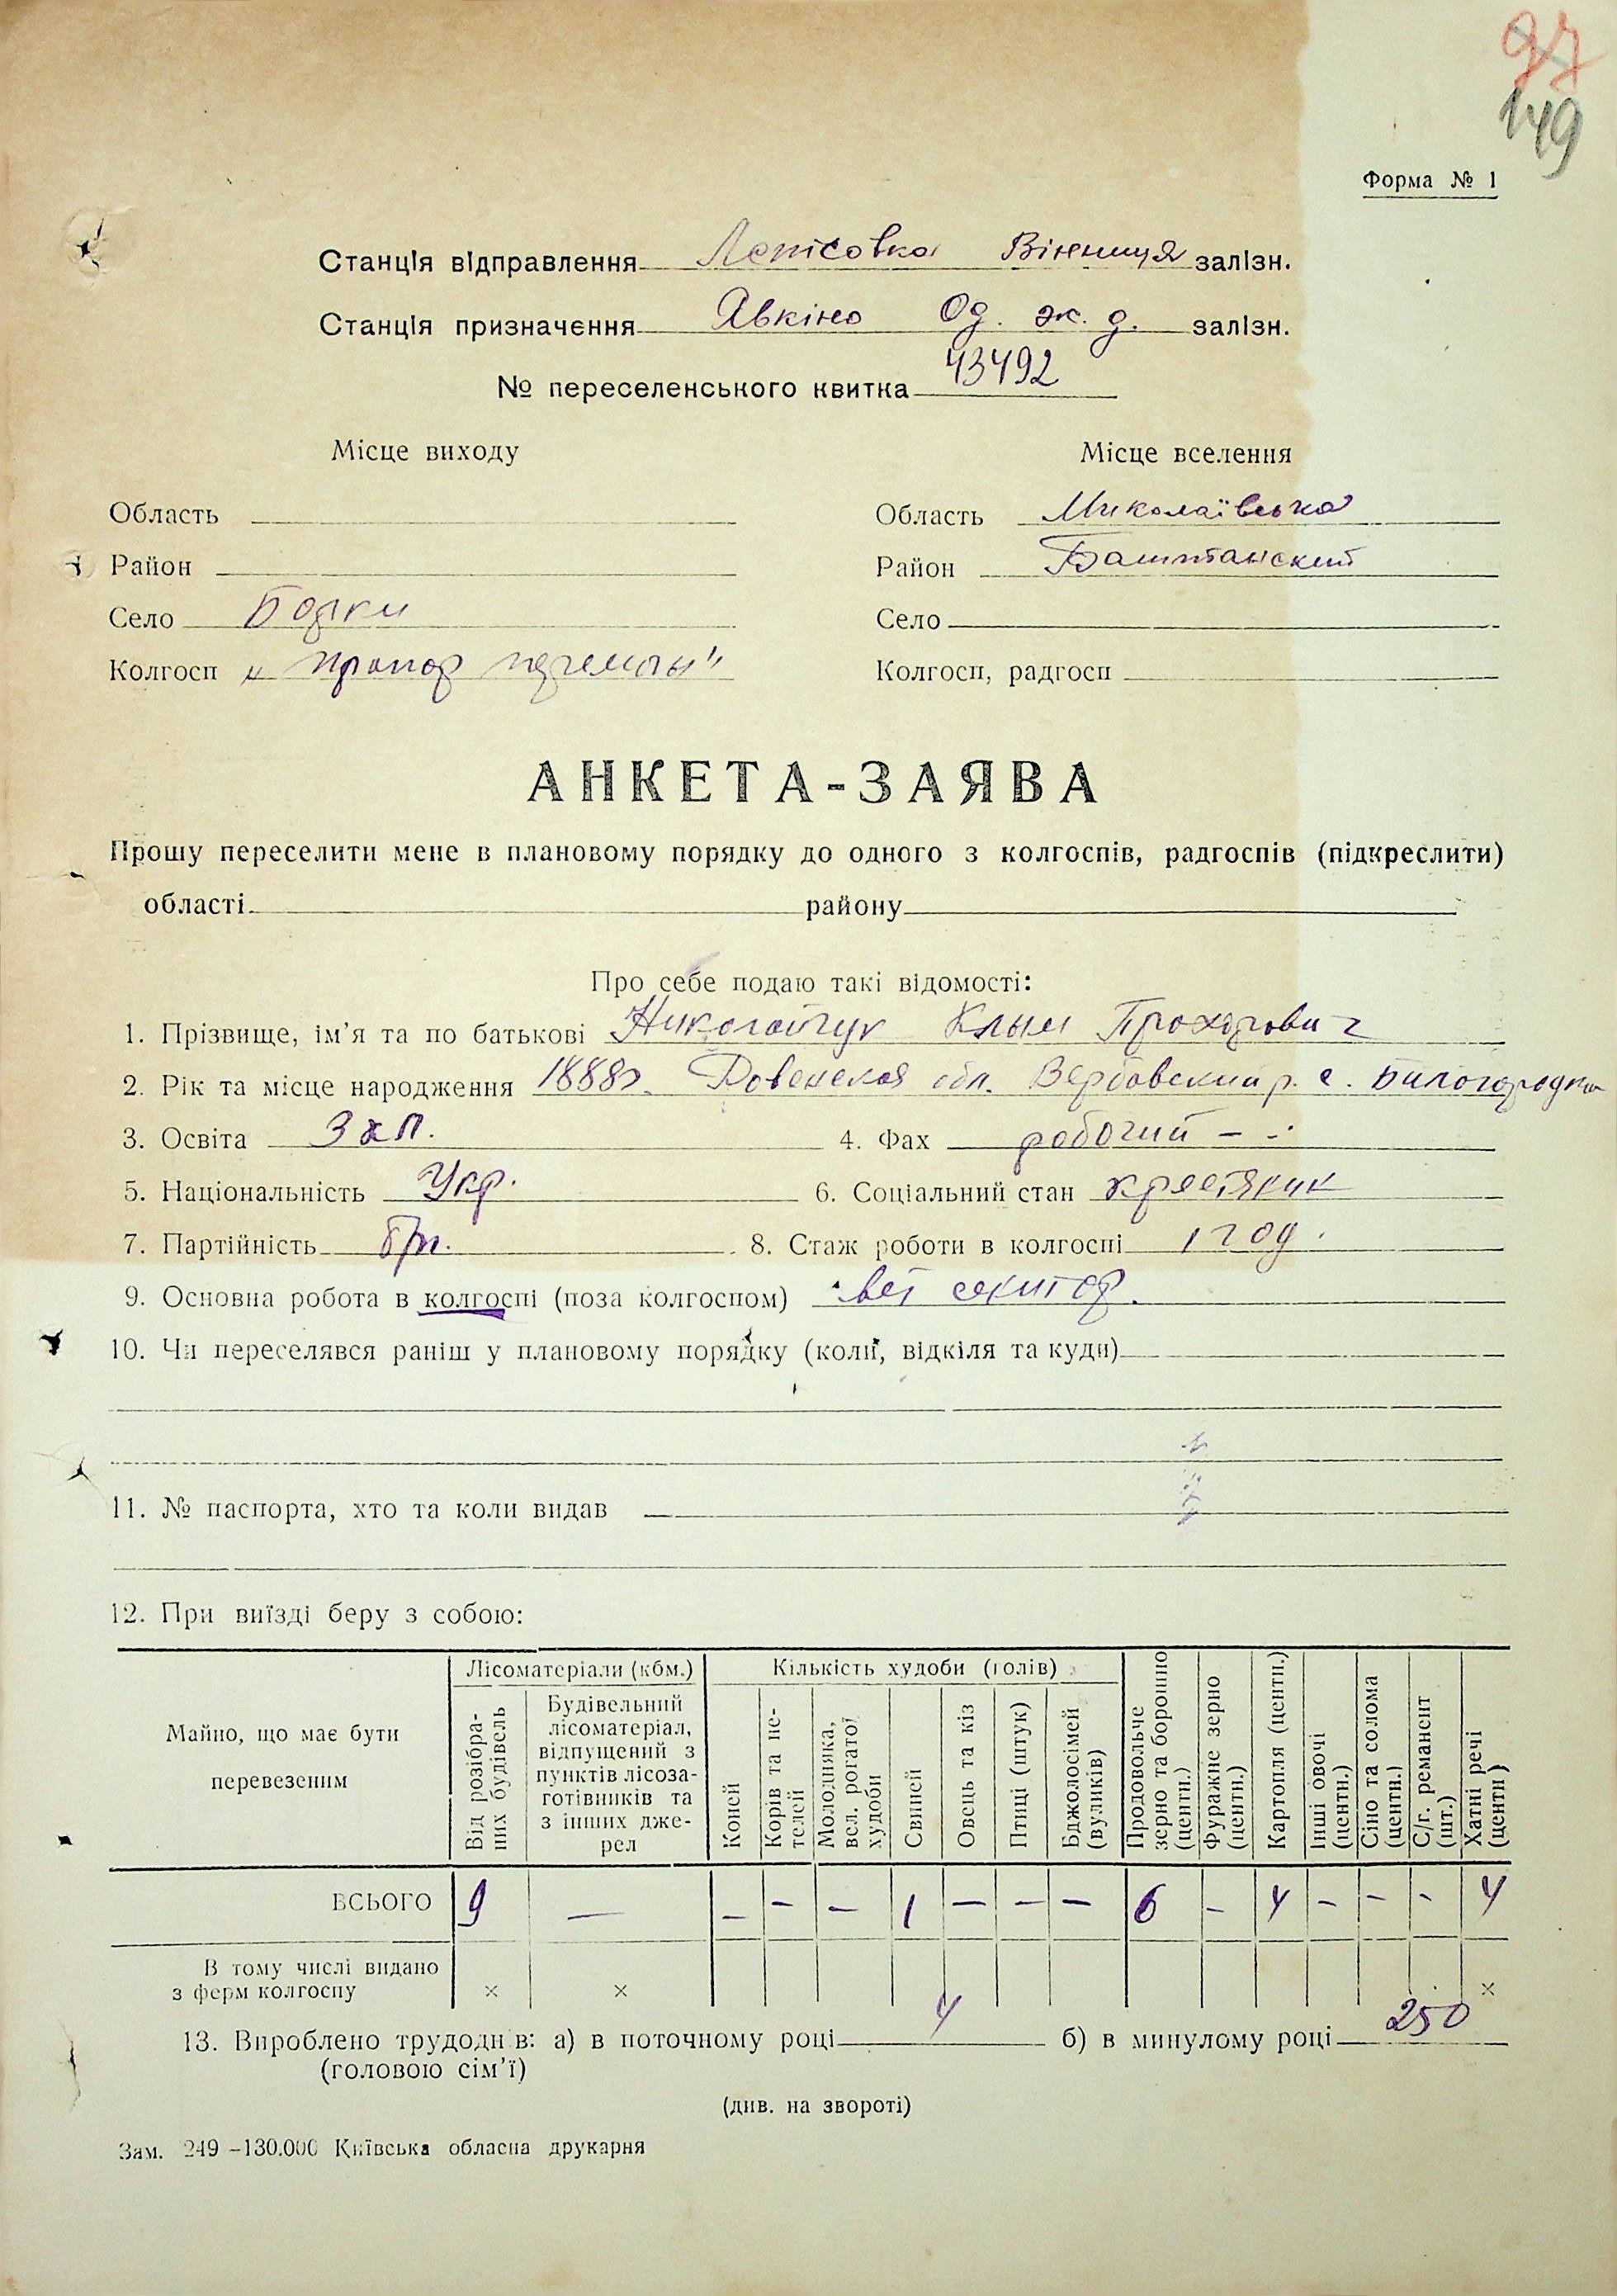 97
149
Форма № 1
Станція відправлення Лепісовка Вінниця залізн.
Станція призначення Явкіно Од. ж. д. залізн.
№ переселенського квитка 43492
Місце виходу Місце вселення
Область Область Миколаївська
Район Район Баштанский
Село Село
Колгосп „Прапор перемоги" Колгосп, радгосп
АНКЕТА-ЗАЯВА
Прошу переселити мене в плановому порядку до одного з колгоспів, радгоспів (підкреслити)
області району
Про себе подаю такі відомості:
1. Прізвище, ім’я та по батькові Николайчук Клым Прохорович
2. Рік та місце народження 1888г. Ровенская обл. Вербовский р. с. Билогородка
3. Освіта 3 кл. 4. Фах робочий – –
5. Національність Укр. 6. Соціальний стан крестянин
7. Партійність бп. 8. Стаж роботи в колгоспі 1 год.
9. Основна робота в колгоспі (поза колгоспом) вет санитар.
10. Чи переселявся раніш у плановому порядку (коли, відкіля та куди)
11. № паспорта, хто та коли видав
12. При виїзді беру з собою:
Майно, що має бути перевезеним
Лісоматеріали (кбм.)
Від розібраних будівель
Будівельний лісоматеріал, відпущений з пунктів лісозаготівників та з інших джерел
Кількість худоби (голів)
Коней
Корів та нетелей
Молодняка, вел. рогатої худоби
Свиней
Овець та кіз
Птиці (штук)
Бджолосімей (вуликів)
Продовольче зерно та борошно (центн.)
Фуражне зерно (центн.)
Картопля (центн.)
Інші овочі (центн.)
Сіно та солома (центн.)
С/г. реманент (шт.)
Хатні речі (центн)
ВСЬОГО 9 — – – – 1 – – – 6 – 4 – – – 4
В тому числі видано
з ферм колгоспу × × ×
13. Вироблено трудоднів: а) в поточному році 4 б) в минулому році 250
(головою сім’ї)
(див. на звороті)
Зам. 249 –130.000 Київська обласна друкарня